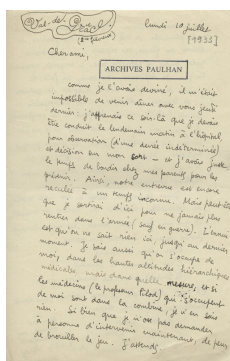 Val-de-Grâce
lundi 10 juillet
[1933]
Cher ami,
ARCHIVES PAULHAN
comme je l'avais deviné, il m'était
impossible de venir dîner avec vous jeudi
dernier : j'apprenais ce soir-là que je devais
être conduit le lendemain matin à l'hôpital,
pour observation (d'une durée indéterminée)
et décision sur mon sort — et j'avais juste
le temps de bondir chez mes parents pour les
prévenir. Ainsi, notre entrevue est encore
reculée à un temps inconnu. Mais peut-être
que je sortirai d'ici pour ne jamais plus
rentrer dans l'armée (sauf en guerre). L'ennui
est qu'on ne sait rien ici, jusqu'au dernier
moment. Je sais aussi qu'on s'occupe de
moi, dans les hautes altitudes hiérarchiques
médicales, mais dans quelle mesure, et si
les médecins (le professeur Pilod) qui s'occupent
de moi sont dans la combine, je n'en sais
rien. Si bien que je n'ose pas demander
à personne d'intervenir maintenant, de peur
de brouiller le jeu. J'attends